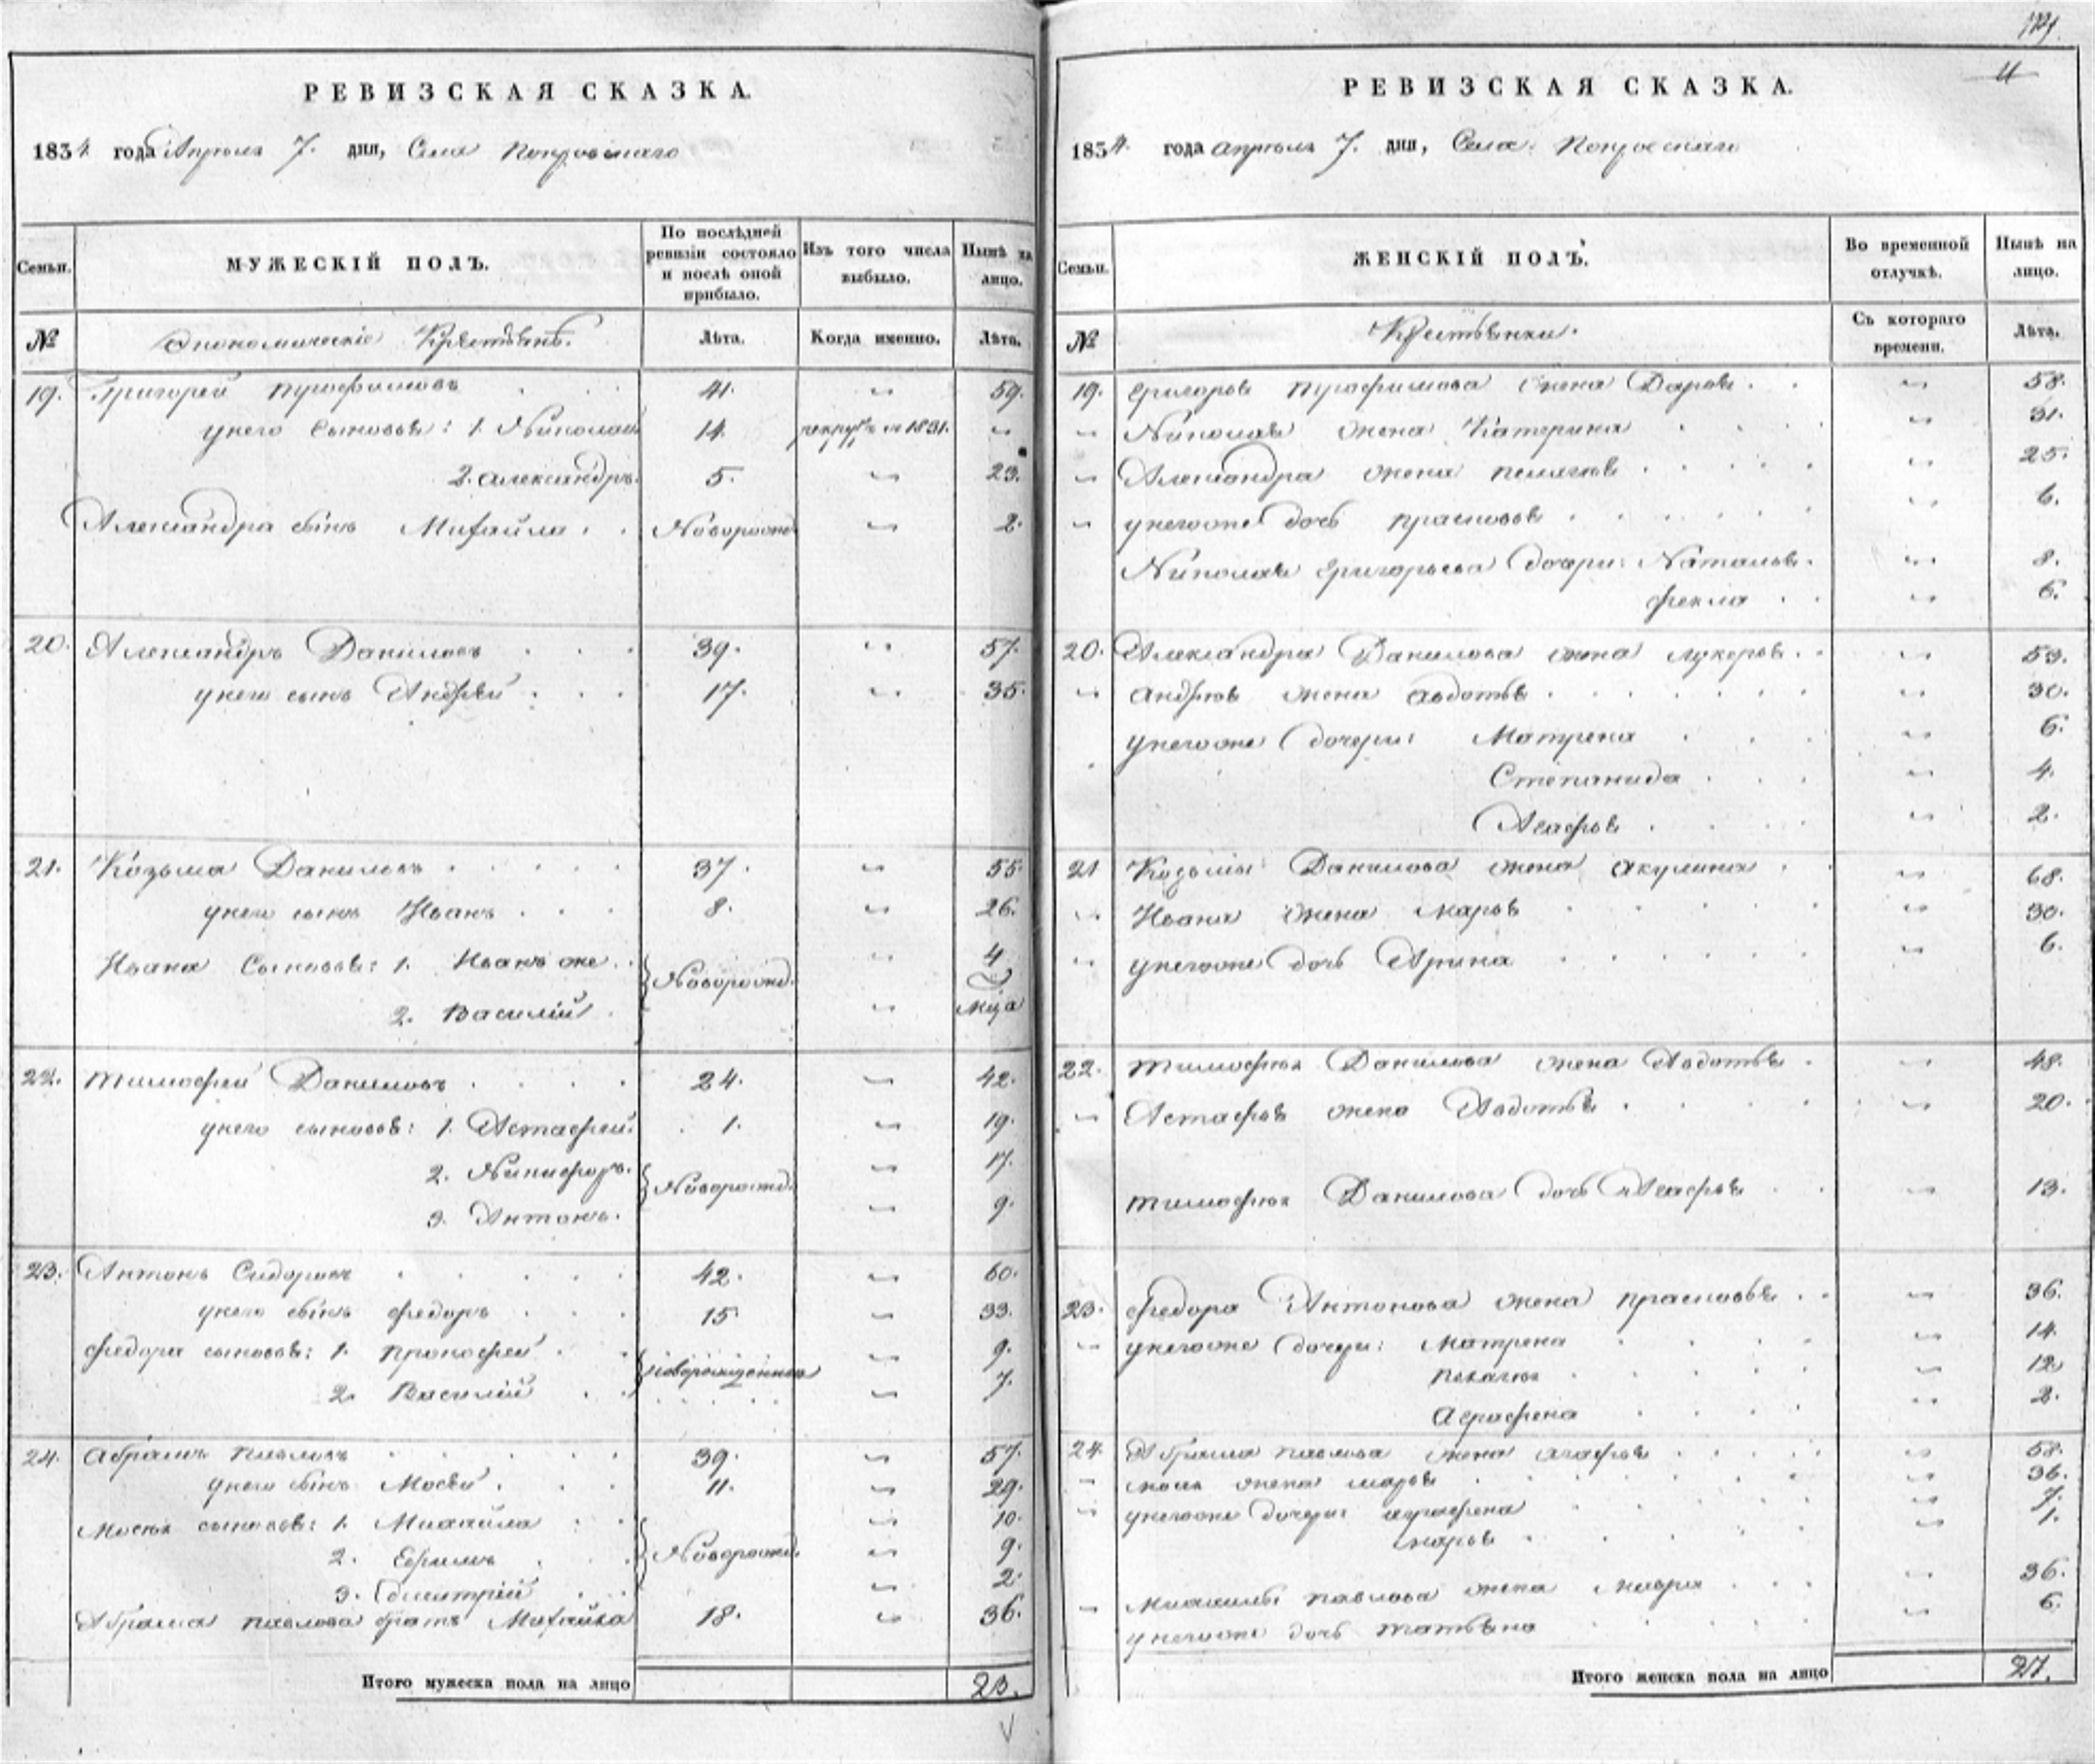 РЕВИЗСКАЯ СКАЗКА.
1834 года Апреля 7. дня, Села Покровскаго
Семьи.
МУЖЕСКІЙ ПОЛЪ.
По послѣдней ревизіи состояло и послѣ оной прибыло.
Изъ того числа выбыло.
Нынѣ на лицо.
№ Экономическіе Крестьянъ. Лѣта. Когда именно. Лѣта.
19. Григорей Трофимовъ 41. 59.
у него сыновья: 1. Николай 14. рекрутъ въ 1831.
2. Александръ. 5. 23.
Александра сынъ Михайла Новорожд. 2.
20. Александръ Даниловъ 39. 57.
у него сынъ Андрей 17. 35.
21. Козьма Даниловъ 37. 55.
у него сынъ Иванъ 8. 26.
Ивана Сыновья: 1. Иванъ же. Новорожд. 4
2. Василій мца
22. Тимофей Даниловъ 24. 42.
у него сыновья: 1. Астафей. 1. 19.
2. Никифоръ. Новорожд. 17.
3. Антонъ. 9.
23. Антонъ Сидоровъ 42. 60.
у него сынъ Федоръ 15. 33.
Федора сыновья: 1. Прокофей новорожденные 9.
2. Василій 7.
24. Абрамъ Павловъ 39. 57.
у него сынъ Мосей 11. 29.
Мосея сыновья: 1. Михайла Новорожд. 10.
2. Ефимъ 9.
3. Дмитрій 2.
Абрама Павлова братъ Михайла 18. 36.
Итого мужеска пола на лицо 23.
11
РЕВИЗСКАЯ СКАЗКА.
1834. года апреля 7. дня, Села Покровскаго
Семьи.
ЖЕНСКІЙ ПОЛЪ.
Во временной отлучкѣ.
Нынѣ на лицо.
№ Крестьянки. Съ котораго времени. Лѣта.
19. Григорья Трофимова жена Дарья 58.
Николая жена Катерина 31.
Александра жена Пелагея 25.
у негоже дочь Прасковья 6.
Николая Григорьева дочери: Наталья 8.
Фекла 6.
20. Александра Данилова жена Лукерья 53.
Андрея жена Авдотья 30.
у негоже дочери: Матрена 6.
Степанида 4.
Агафья 2.
21 Козьмы Данилова жена Акулина 68.
Ивана жена Марья 30.
у негоже дочь Арина 6.
22. Тимофея Данилова жена Авдотья 48.
Астафья жена Авдотья 20.
Тимофея Данилова дочь Агафья 13.
23. Федора Антонова жена Прасковья 36.
у негоже дочери: Матрена 14.
Пелагея 12
Аграфена 2.
24. Абрама Павлова жена Агафья 58.
Мосея жена Марья 36.
у негоже дочери: Аграфена 7.
Марья 1.
Михайлы Павлова жена Мавра 36.
у негоже дочь Татьяна 6.
Итого женска пола на лицо 27.